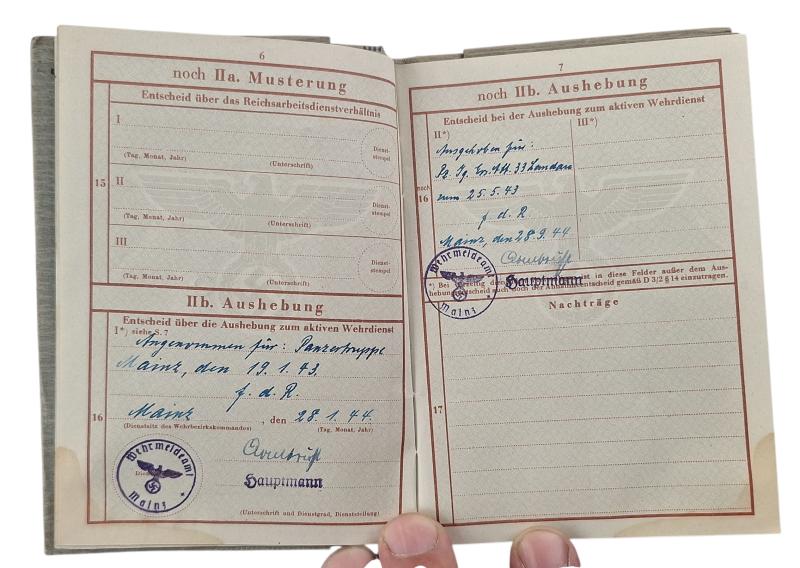 6
noch IIa. Musterung
Entscheid über das Reichsarbeitsdienstverhältnis
I
(Tag, Monat, Jahr)
(Unterschrift)
Dienst-
stempel
15
II
(Tag, Monat, Jahr)
(Unterschrift)
Dienst-
stempel
III
(Tag, Monat, Jahr)
(Unterschrift)
Dienst-
stempel
IIb. Aushebung
Entscheid über die Aushebung zum aktiven Wehrdienst
I*) siehe S. 7
Angenommen für: Panzertruppe
Mainz, den 19.1.43.
f. d. R.
16
Mainz, den 28.1.44
(Dienstsitz des Wehrbezirkskommandos)
(Tag, Monat, Jahr)
Wehrmeldeamt
Mainz
Hauptmann
(Unterschrift und Dienstgrad, Dienststellung)
7
noch IIb. Aushebung
Entscheid bei der Aushebung zum aktiven Wehrdienst
II*)
III*)
Ausgehoben für:
33 Landau
noch
16
zum 25.5.43
f. d. R.
Mainz, den 28.9.44
Wehrmeldeamt
Mainz
Hauptmann
*) Bei ist in diese Felder außer dem Aus-
hebungsentscheid auch noch der Annahmeentscheid gemäß D 3/2 § 14 einzutragen.
Nachträge
17